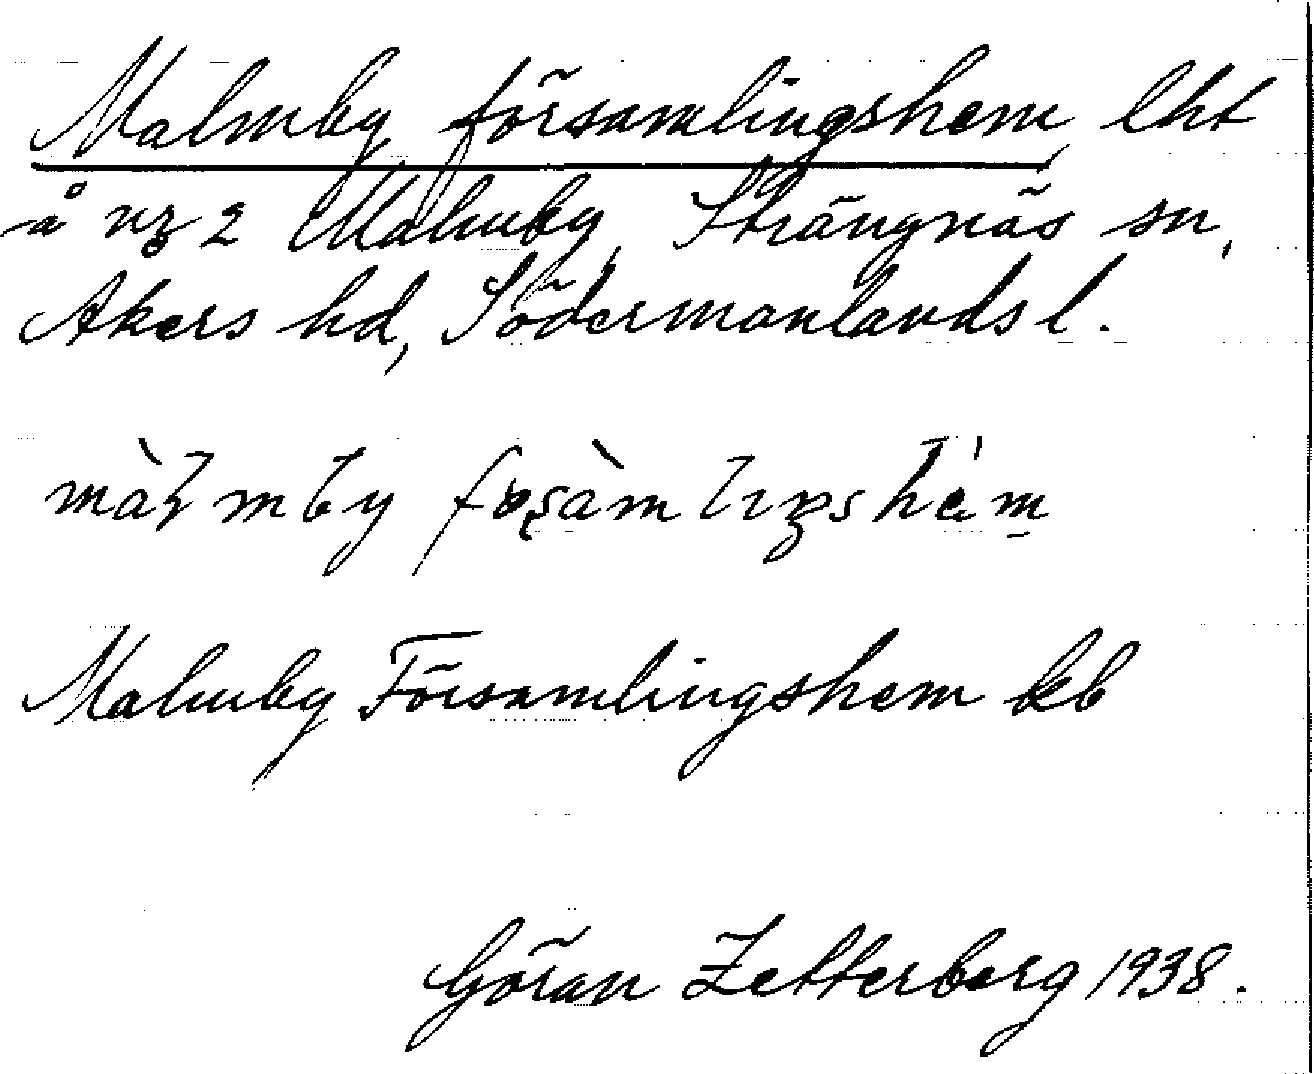 Malmby församlingshem lht
å nr 2 Malmby, Strängnäs sn,
Åkers hd, Södermanlands l.
Malmby Församlingshem kb
Göran Zetterberg 1938.